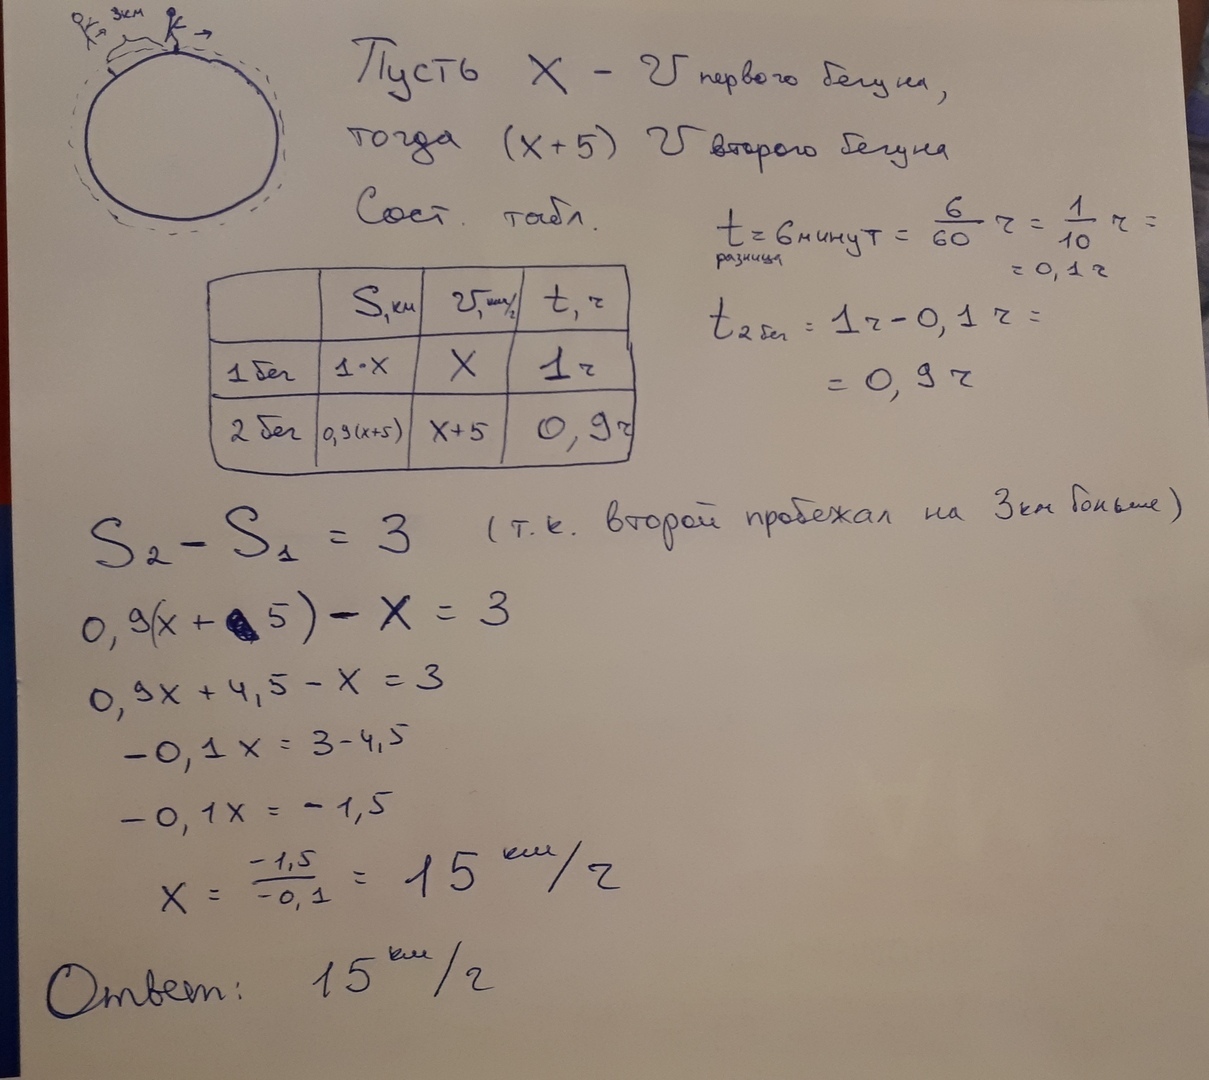 3км
Пусть x - v первого бегуна,
тогда (x+5) v второго бегуна
Сост. табл.
t разница = 6 минут = 6/60 ч = 1/10 ч =
= 0,1 ч
t 2 бег = 1ч - 0,1 ч =
= 0,9 ч
S, км v, км/ч t, ч
1 бег 1·x x 1 ч
2 бег 0,9(x+5) x+5 0,9ч
S₂ - S₁ = 3 (т.к. второй пробежал на 3км больше)
0,9(x + 5) - x = 3
0,9x + 4,5 - x = 3
-0,1x = 3-4,5
-0,1x = -1,5
x = -1,5/-0,1 = 15 км/ч
Ответ: 15 км/ч